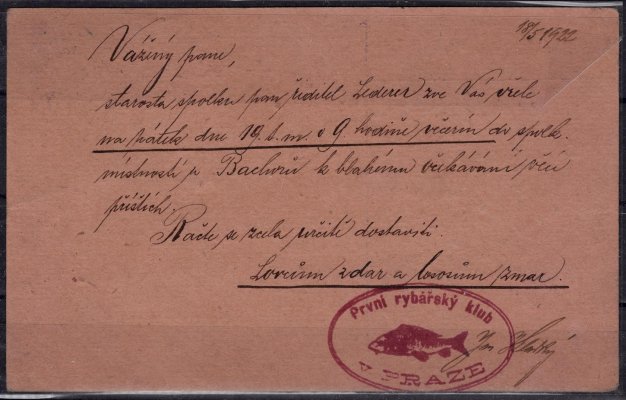 18/5 1922
Vážený pane,
starosta spolku pan ředitel Lederer zve Vás vřele
na pátek dne 19. t. m. o 9 hodině večerní do spolk.
místností u Bachorů k blahému očekávání věcí
příštích.
Račte se zcela určitě dostaviti.
Lovcům zdar a lososům zmar.
První rybářský klub
v PRAZE
Jos